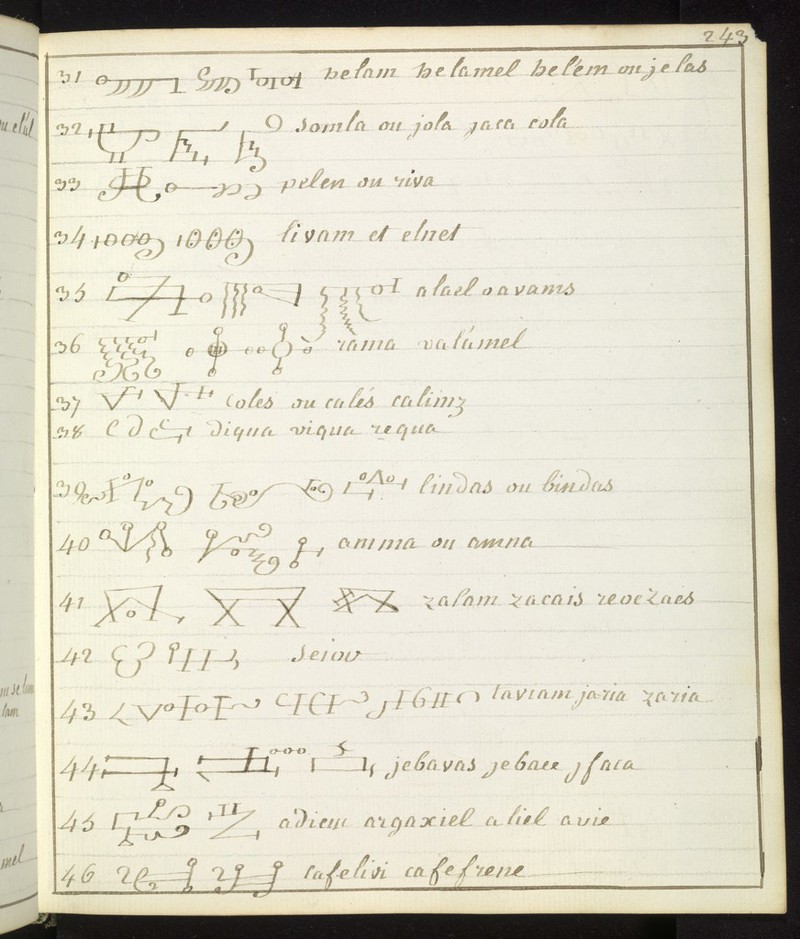 243
31 belam belamel belém ou jelas
32 somla ou jola jaca cola
33 pelen ou riva
34 livam et elnet
35 alael oavams
36 rama valámel
37 coles ou calés calimz
38 diqua viqua requa
39 lindas ou bindas
40 amma ou amna
41 zalam zacais
42 seiov
43 taviam jaria zaria
44 jebavas jebaee jfaca
45 adiem argaxiel aliel avie
46 cafelivi cafefrene